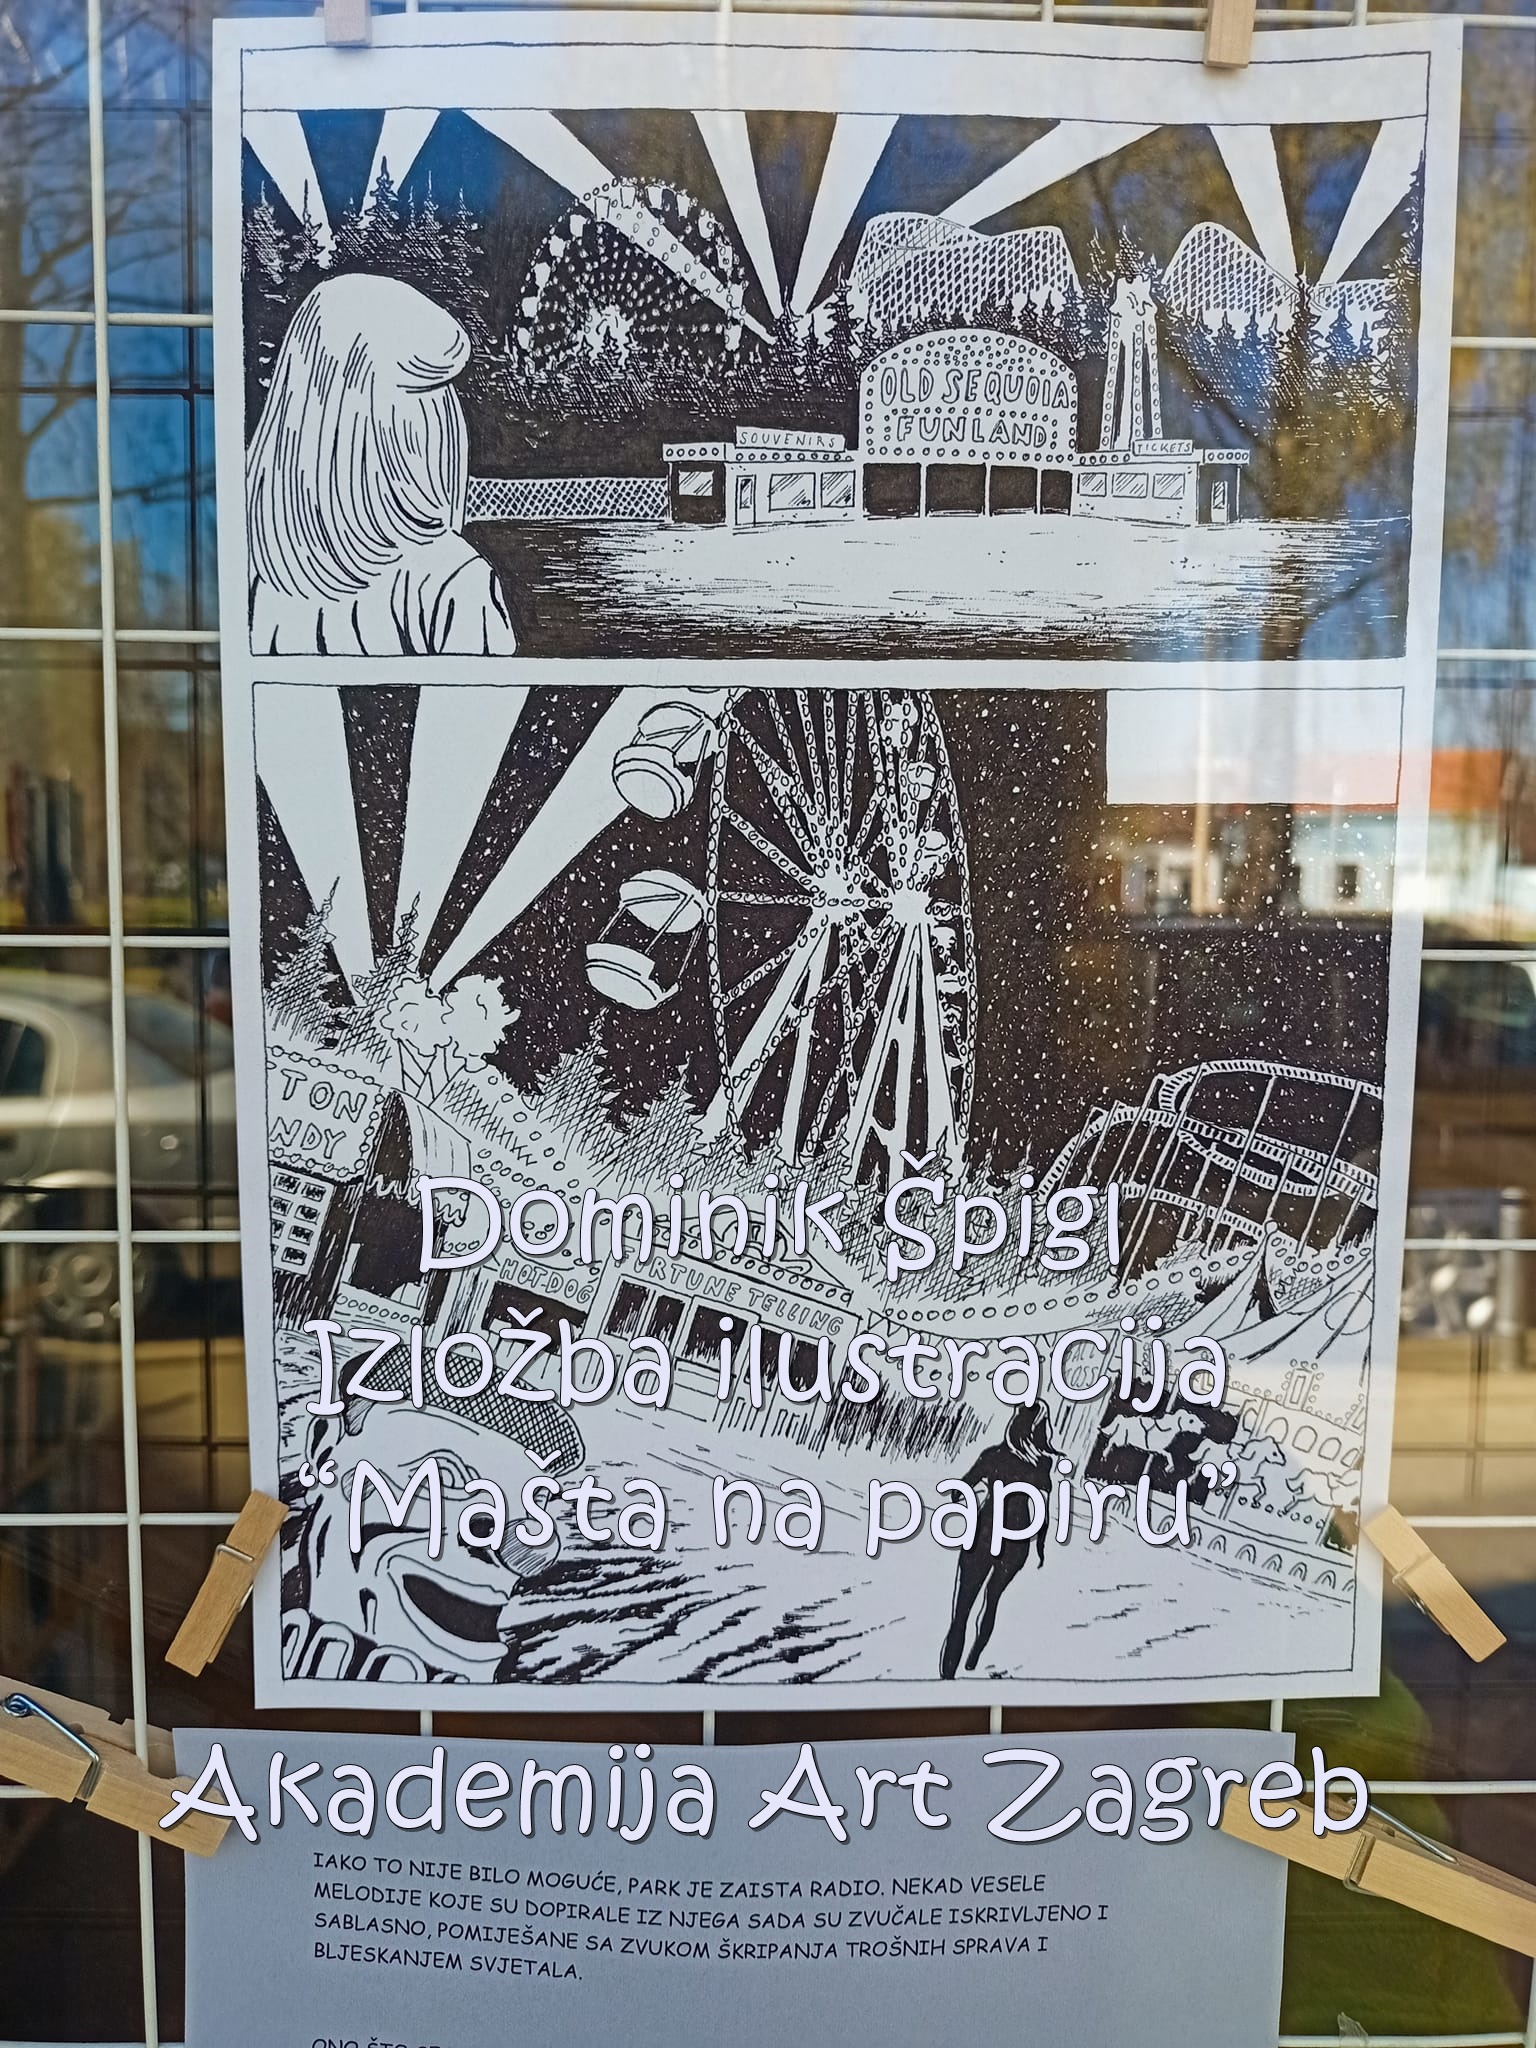 OLD SEQUOIA
FUNLAND
SOUVENIRS
TICKETS
TON
NDY
HOT-DOG
FORTUNE TELLING
Dominik Špigl
Izložba ilustracija
“Mašta na papiru”
Akademija Art Zagreb
IAKO TO NIJE BILO MOGUĆE, PARK JE ZAISTA RADIO. NEKAD VESELE
MELODIJE KOJE SU DOPIRALE IZ NJEGA SADA SU ZVUČALE ISKRIVLJENO I
SABLASNO, POMIJEŠANE SA ZVUKOM ŠKRIPANJA TROŠNIH SPRAVA I
BLJESKANJEM SVJETALA.
ONO ŠTO